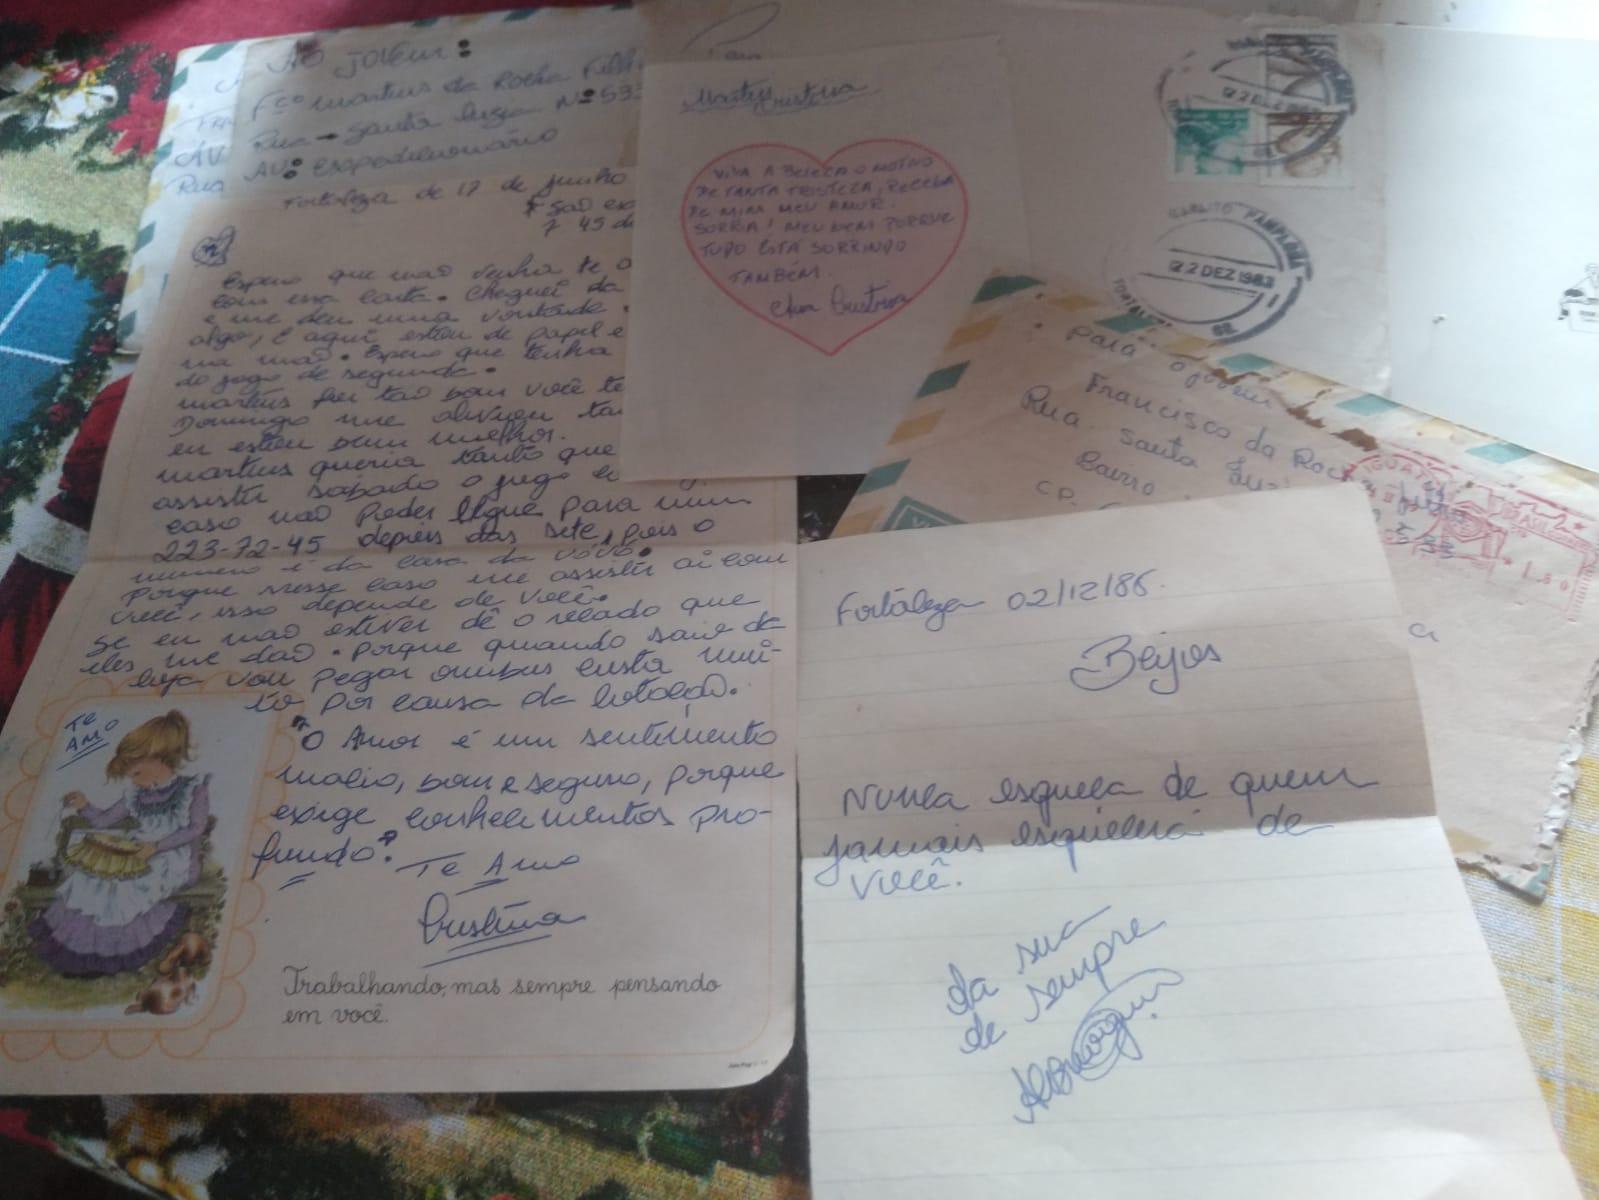 AO JOVEM:
Fco Martins da Rocha Filh
Rua → Santa Luzia Nº 593
AV: Expedicionário
AV
Rua
Fortaleza de 17 de junho
7 45 da
Espero que não venha te
com essa carta. Cheguei da
e me deu uma vontade
algo, e aqui estou de papel e
na mão. Espero que tenha
do jogo de segunda.
Martins foi tão bom você te
Domingo me aliviou
eu estou bem melhor.
Martins queria tanto que
assistir sábado o jogo
caso não poder ligue para mim
223-72-45 depois das sete, pois o
número é da casa da vovó.
Porque nesse caso me assistir ai com
você, isso depende de você.
Se eu não estiver dê o recado que
eles me dão. Porque quando saio da
loja vou pegar onibus custa mui-
to por causa da lotação.
"O Amor é um sentimento
macio, bom e seguro, porque
exige conhecimentos pro-
fundo"
Te Amo
Cristina
Te
AMO
Trabalhando, mas sempre pensando
em você.
Para
Martins
Cristina
VIVA A BELEZA O MOTIVO
DE TANTA TRISTEZA, RECEBA
DE MIM MEU AMOR.
SORRIA! MEU BEM PORQUE
TUDO ESTÁ SORRINDO
TAMBÉM.
Cristina
22 DEZ 1983
CARLITO PAMPLONA
22 DEZ 1983
FORTALEZA
Para o jovem
Francisco da Roc
Rua Santa Luzi
Bairro
IGUAT
BRASIL
533
Fortaleza 02/12/86.
Beijos
Nunca esqueca de quem
jamais esquecerá de
você.
da sua
de sempre